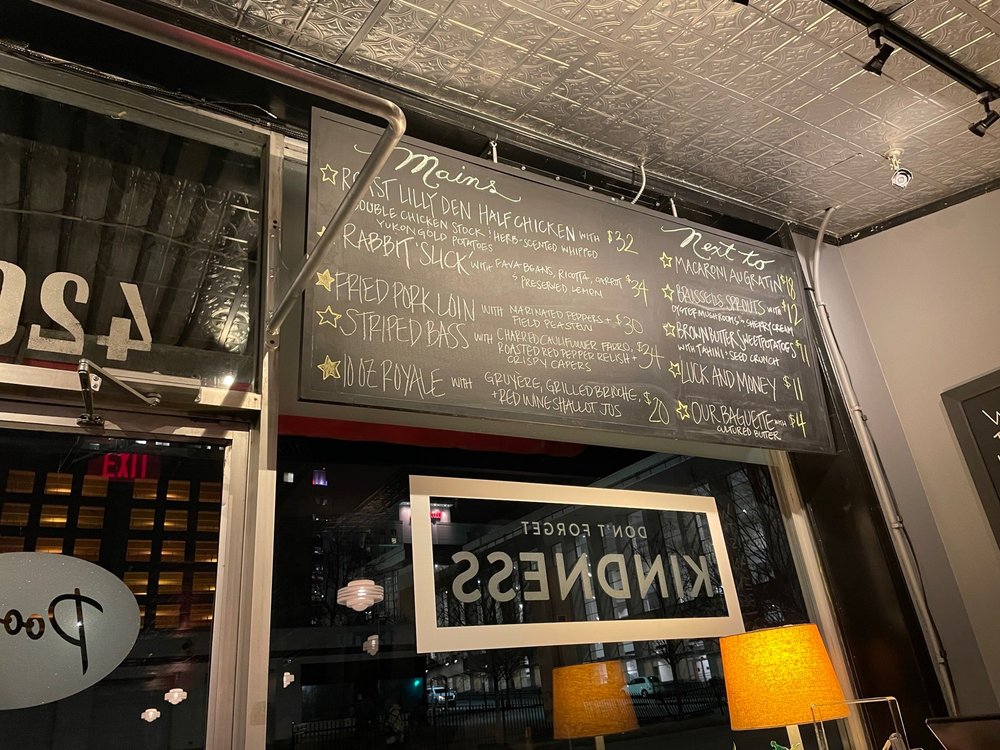 Mains
ROAST LILLY DEN HALF CHICKEN WITH $32
DOUBLE CHICKEN STOCK & HERB-SCENTED WHIPPED
YUKON GOLD POTATOES
RABBIT 'SLICK' WITH FAVA BEANS, RICOTTA, CARROT $34
& PRESERVED LEMON
FRIED PORK LOIN WITH MARINATED PEPPERS + $30
FIELD PEA STEW
STRIPED BASS WITH CHARRED CAULIFLOWER FARRO, $34
ROASTED RED PEPPER RELISH +
CRISPY CAPERS
10 OZ ROYALE WITH GRUYERE, GRILLED BRIOCHE, $20
+ RED WINE SHALLOT JUS
Next to
MACARONI AU GRATIN $18
BRUSSEDS SPROUTS WITH $12
OYSTER MUSHROOMS & SHERRY CREAM
BROWN BUTTER SWEET POTATOES $11
WITH TAHINI & SEED CRUNCH
LUCK AND MONEY $11
OUR BAGUETTE WITH $4
CULTURED BUTTER
420
EXIT
DON'T FORGET
KINDNESS
Poo